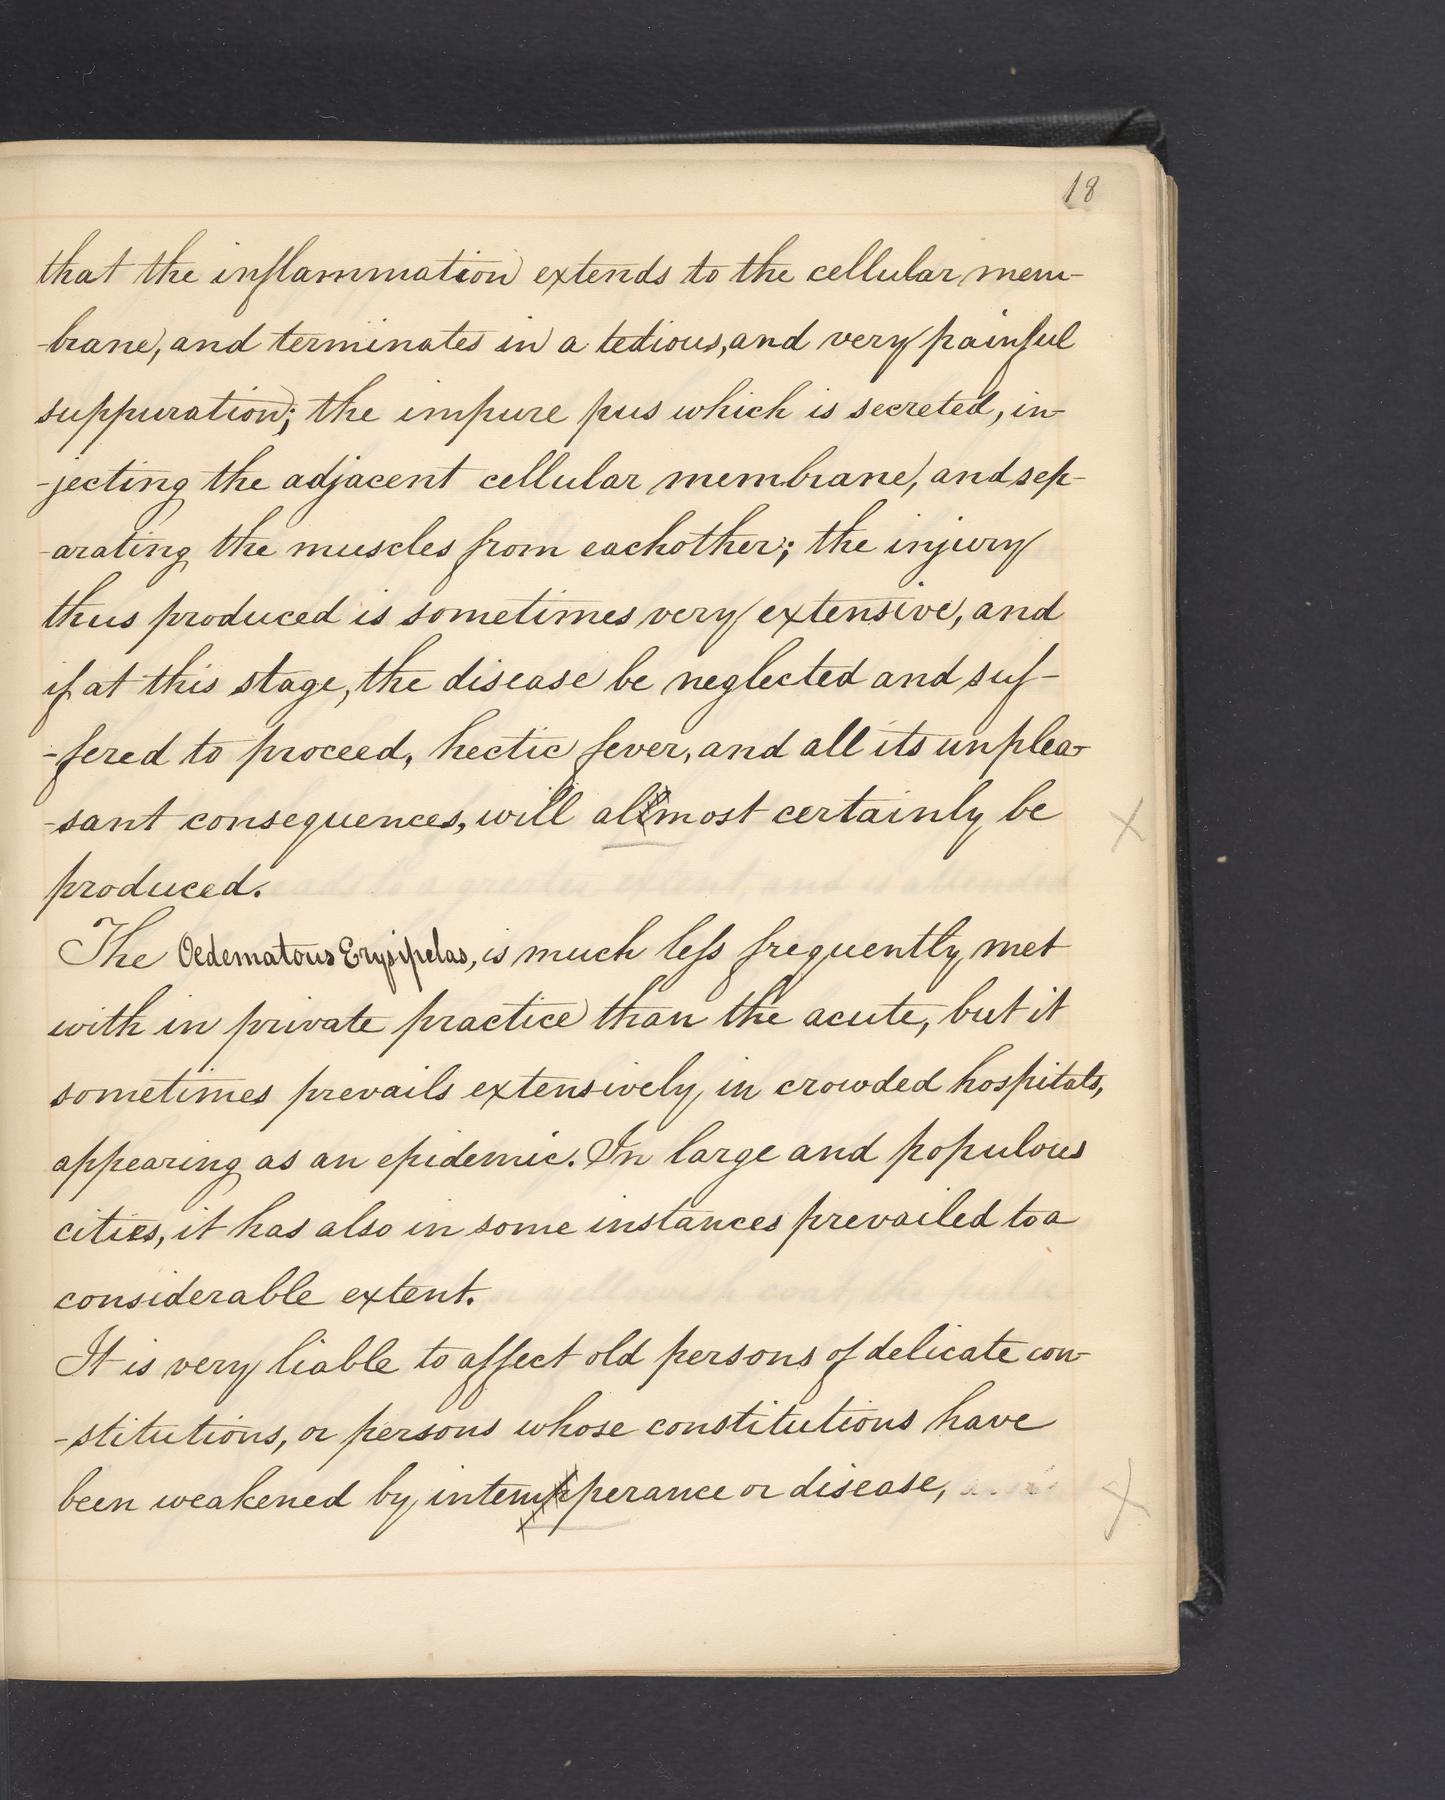 18
that the inflammation extends to the cellular mem-
-brane, and terminates in a tedious, and very painful
suppuration; the impure pus which is secreted, in-
-jecting the adjacent cellular membrane, and sep-
-arating the muscles from eachother; the injury
thus produced is sometimes very extensive, and
if at this stage, the disease be neglected and suf-
-fered to proceed, hectic fever, and all its unplea-
-sant consequences, will almost certainly be
produced.
The Oedematous Erysipelas, is much less frequently met
with in private practice than the acute, but it
sometimes prevails extensively in crowded hospitals,
appearing as an epidemic. In large and populous
cities, it has also in some instances prevailed to a
considerable extent.
It is very liable to affect old persons of delicate con-
-stitutions, or persons whose constitutions have
been weakened by intemperance or disease,